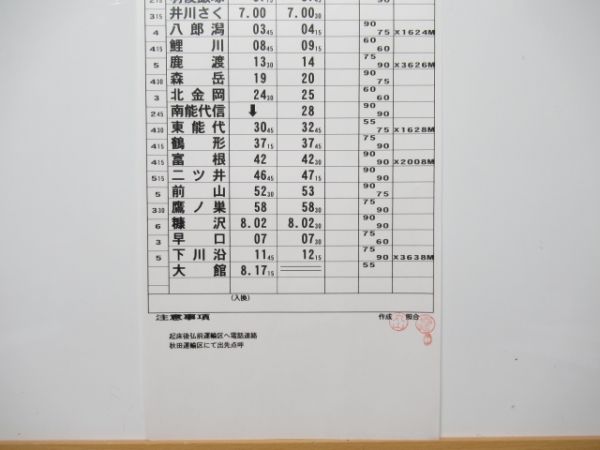 3 15 井川さく 7.00 7.00 30
4 八郎潟 03 45 04 15 90 75 X1624M
4 15 鯉川 08 45 09 15 60 60
5 鹿渡 13 30 14 75 90 X3626M
4 30 森岳 19 20 90 75
3 北金岡 24 30 25 60 60
2 45 南能代信 ⬇ 28
4 30 東能代 30 45 32 45 55 75 X1628M
4 15 鶴形 37 15 37 45 75 90
4 15 富根 42 42 30 90 90 X2008M
5 15 二ツ井 46 45 47 15 90 75
5 前山 52 30 53 90 90
3 30 鷹ノ巣 58 58 30 75 90
6 糠沢 8.02 8.02 30 90 90
3 早口 07 07 30 75 60
5 下川沿 11 45 12 15 75 90 X3638M
大館 8.17 15 55
(入換)
注意事項 作成 照合
起床後弘前運輸区へ電話連絡
秋田運輸区にて出先点呼